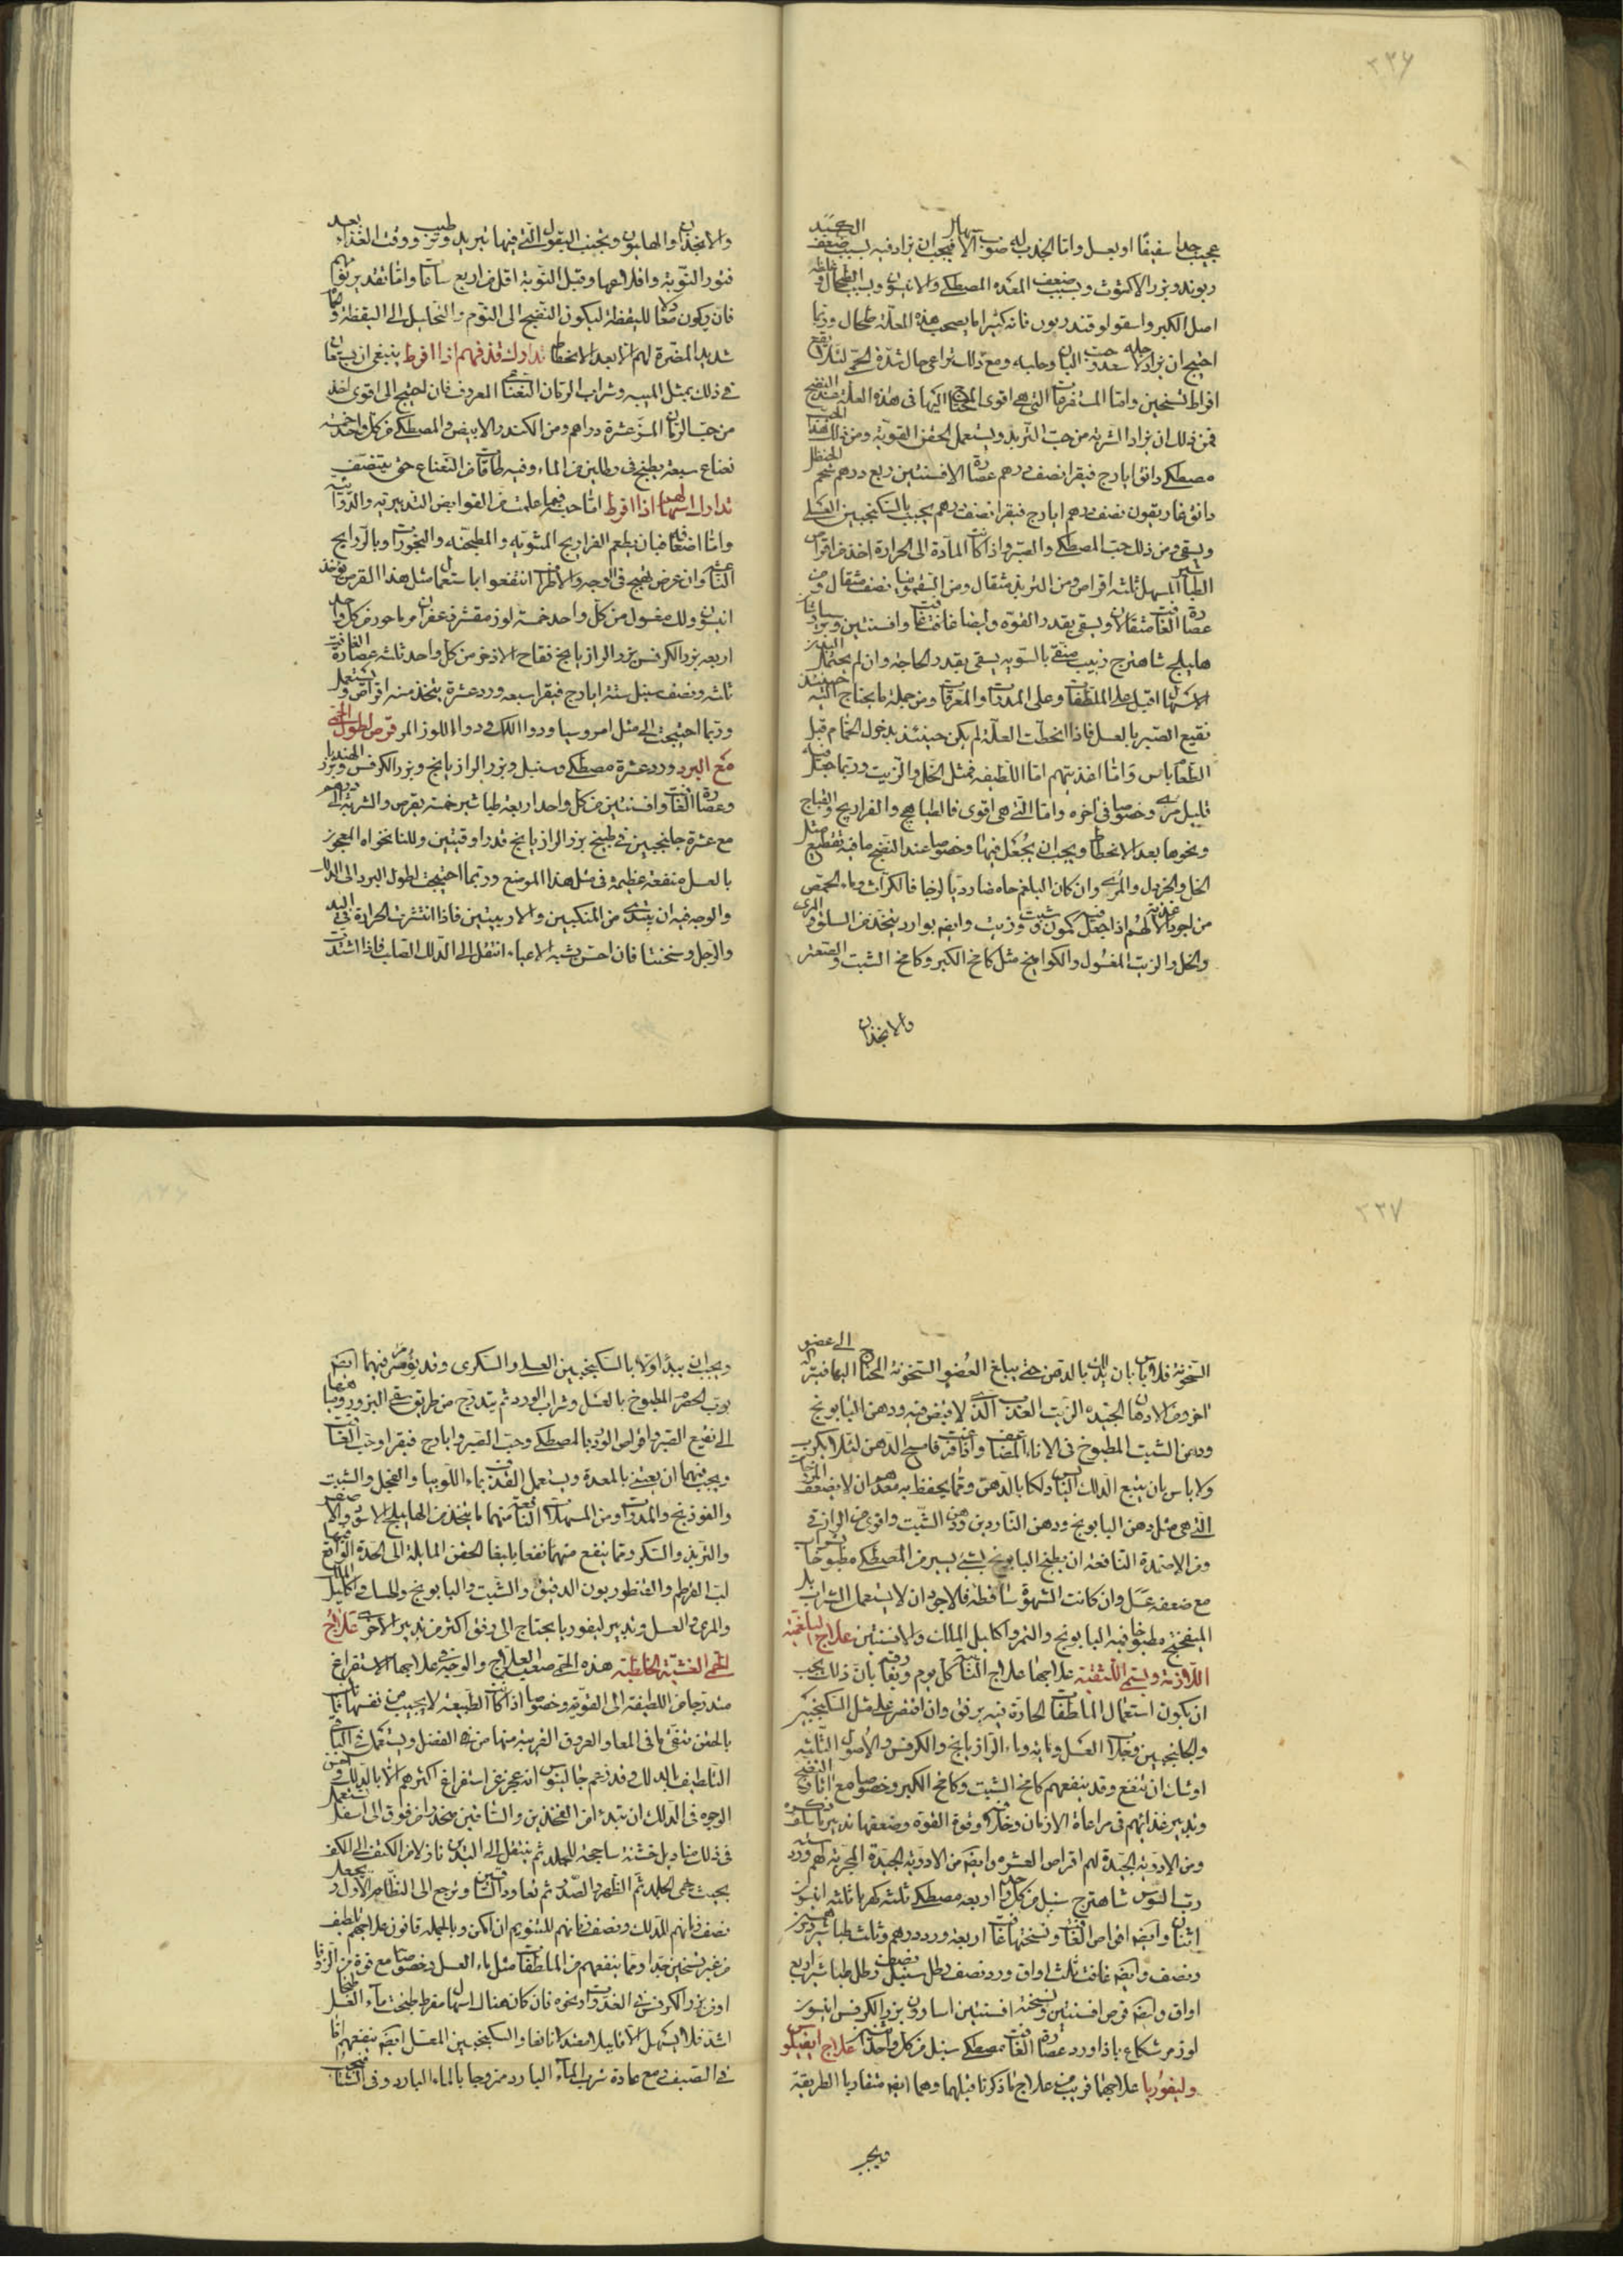 ٣٣٦
عجيب جدا سفيفا او بعسل واما الجذب له صواب الا فيجب ان يزاد فيه لسبب ضعف
ريوند وبزر الاكشوث وبسبب ضعف المعدة المصطكى والانيسون وبسبب الطحال
اصل الكبر واسقولوقندريون فانه كثيرا ما يصحب هذه العلة طحال وربما
احتيج ان يزاد لاجله سعد وحب البان وحلبه ومع ذلك تراعى حال شدة الحمى لئلا يقع
افراط تسخين واما المستفرغات التى هى اقوى المحتاج اليها فى هذه العلة عند النضج
فمن ذلك ان يزاد الشربة من حب التربد ويستعمل الحقن القوية ومن ذلك هذا الحب
مصطكى دانق ايارج فيقرا نصف درهم عصارة الافسنتين ربع درهم شحم الحنظل
دانق غاريقون نصف درهم ايارج فيقرا نصف درهم يحبب بالسكنجبين العسلى
ويسقى ومن ذلك حب المصطكى والصبر واذا كانت المادة الى الحرارة اخذ من اقراص
الطباشير المسهل ثلثه اقراص ومن التربد مثقال ومن السقمونيا نصف مثقال ومن
عصارة الغافت مثقالان ويسقى بقدر القوة وايضا غافت وافسنتين
هليلج شاهترج زبيب منقى بالسوية يسقى بقدر الحاجة وان لم يحتمل البدن
الاسهال اقبل على الملطفات وعلى المدرات والمعرقات ومن جملة ما يحتاج اليه حينئذ
نقيع الصبر بالعسل فاذا انحطت العلة لم يكن حينئذ بدخول الحمام قبل
الطعام باس واما اغذيتهم اما اللطيفه فمثل الخل والزيت وربما جعل فيه
قليل مرى وخصوصا فى اخره واما التى هى اقوى فالطياهيج والفراريج والقباج
ونحوها بعد الانحطاط ويجب ان يجعل فيها وخصوصا عند النضج ما فيه تقطيع مثل
الخل والخردل والمرى وان كان البلغم حامضا رديا لزجا فالكراث وماء الحمص
من اجود الاغذية لهم اذا جعل فيه كمون وشبت وزيت وايضه بوارد يتخذ من السلق والمرى
والخل والزيت المغسول والكوامخ مثل كامخ الكبر وكامخ الشبت والصعتر
والانجذان
والانجذان والهليون ويجنب البقول التى فيها تبريد وترطيب ووقت الغذاء بعد
فتور النوبة واقلاعها وقبل النوبة اقل من اربع ساعات واما تقدير نومهم
فان يكون معادلا لليقظة ليكون النضج الى النوم والتحليل الى اليقظة
شديد المضرة لهم الا بعد الانحطاط تدارك قذفهم اذا افرط ينبغى ان يستعان
فى ذلك بمثل الميبه وشراب الرمان النعناعى المعروف فان احتيج الى اقوى اخذ
من حب الرمان المز عشرة دراهم ومن الكندر الابيض والمصطكى من كل واحد خمسة
نعناع سبعة يطبخ فى رطلين من الماء وفيه طاقات من النعناع حتى ينتصف
تدارك اسهالهم اذا افرط اما حبسهم فيما علمت من القوابض التدبيرية والدوائية
واما اضعافه فبان يطعم الفراريج المشوية والمطجنه والبخورات وبالروايح
وان عرض تهيج فى الوجه والاطراف انتفعوا باستعمال مثل هذا القرص يؤخذ
انيسون ولك مغسول من كل واحد خمسة لوز مقشر زعفران مر ماحوز من كل واحد
اربعه بزر الكرفس بزر الرازيانج فقاح الاذخر من كل واحد ثلثه عصارة الغافت
ثلثه ونصف سنبل ستة ايارج فيقرا سبعه ورد عشرة يتخذ منه اقراص ويستعمل
وربما احتيجت الى مثل امروسيا ودواء اللك ودواء اللوز المر قرص لطول الحمى
مع البرد ورد عشرة مصطكى وسنبل وبزر الرازيانج وبزر الكرفس وبزر الهندبا
وعصارة الغافت وافسنتين من كل واحد اربعة طباشير خمسة يقرص والشربة الى درهم
مع عشرة جلنجبين فى طبيخ بزر الرازيانج قدر اوقيتين وللنانخواه المعجون
بالعسل منفعة عظيمة فى مثل هذا الموضع وربما احتيجت لطول البرد الى الدلك
والوجه فيه ان يبتدى من المنكبين والاربيتين فاذا انتشرت الحرارة فى اليد
والرجل وسخنتا فان احس بشبه الاعياء انتقل الى الدلك الصلب فاذا اشتدت
٣٣٧
السخونة فلا باس بان يدلك بالدهن حتى يبلغ العضو السخونة المحتاج اليها فيترك الى عضو
اخر ومن الادهان الجيدة الزيت العذب الذى لا قبض فيه ودهن البابونج
ودهن الشبت المطبوخ فى الاناء المضاعف واذا فامسح الدهن لئلا يكرب
ولا باس بان يتبع الدلك اليابس دلكا بالدهن ومما يحفظ به معدهم ان لا يضعف المروخات
التى هى مثل دهن البابونج ودهن الناردين ودهن الشبت واقوى من
ومن الاضمدة النافعة ان يطبخ البابونج بشىء يسير من المصطكى مطبوخا بشراب
مع ضعفه عسل وان كانت الشهوة ساقطة فالاجود ان لا يستعمل الشراب بل
الميفختج مطبوخا فيه البابونج والتمر واكليل الملك والافسنتين علاج البلغمية
اللازمة وتسمى اللثقية علاجها علاج النائبه كل يوم وتفارقه بان ذلك يجب
ان يكون استعمال الملطفات الحارة فيه برفق وان اقتصر على مثل السكنجبين
والجلنجبين وماء العسل وماء الرازيانج والكرفس والاصول الثابته
اوشك ان ينفع وقد ينفعهم كامخ الشبت وكامخ الكبر وخصوصا مع النضج
وتدبير غذائهم فى مراعاة الازمان وقوة القوة وضعفها تدبير ما سلف ذكره
ومن الادوية الجيدة لهم اقراص العشره وايضه من الادوية الجيدة المجربة لهم ورد ستة
رب السوس شاهترج سنبل من كل واحد اربعه مصطكى ثلثه كهربا ثلثه انيسون
اثنان وايضه اقراص الغافت ونسختها غافت اربعة ورد درهم وثلث طباشير درهمين
ونصف وايضه غافت ثلث اواق ورد نصف رطل سنبل نصف رطل طباشير اربع
اواق وايضه قرص افسنتين ونسخته افسنتين اسارون بزر الكرفس انيسون
لوز مر شكاعى باذاورد عصارة الغافت مصطكى سنبل من كل واحد علاج ايفيلوس
وليفوريا علاجهما قريب من علاج ما ذكرنا قبلهما وهما ايضه متقاربا الطريقة
ويجب
ويجب ان يبدأ اولا بالسكنجبين العسلى والسكرى وقد يؤمر فيهما ايضه
برب الحصرم المطبوخ بالعسل وشراب الورد ثم يتدرج من طريق سقى البزور
الى نقيع الصبر واقراص الورد بالمصطكى وحب الصبر وايارج فيقرا وحب الغافت
ويجب فيهما ان يعتنى بالمعدة ويستعمل القذف بماء اللوبيا والفجل والشبت
والفوذنج والمدرات ومن المسهلات النافعة منهما ما يتخذ من الهليلج الاسود والاصفر
والتربد والسكر ومما ينفع منهما نفعا بليغا الحقن المايلة الى الحدة الواقع فيها
لب القرطم والقنطوريون الدقيق والشبت والبابونج والحسك واكليل الملك
والمرى والعسل وتدبير ليفوريا يحتاج الى رفق اكثر من تدبير الاخرى علاج
الحمى الغشية الخلطية هذه الحمى صعبة العلاج والوجه فى علاجها الاستفراغ
متدرجا من اللطيفة الى القوية وخصوصا اذا كانت الطبيعة لا تجيب من نفسها
بالحقن تنقى ما فى المعا والعروق القريبة منها من الفضل ويستعمل فى الباقى
التلطيف بالدلك وقد زعم جالينوس انه عجز عن استفراغ اكثرهم الا بالدلك واحسن
الوجوه فى الدلك ان يبتدئ من الفخذين والساقين منحدرا من فوق الى اسفل يستعمل
فى ذلك مناديل خشنة ساحجة للجلد ثم ينتقل الى اليدين نازلا من الكتف الى الكف
بحيث يحمى الجلد ثم الظهر والصدر ثم تعاود الساقين وترجع الى النظام الاول ويجعل
نصف زمانهم للدلك ونصف زمانهم للتنويم ان امكن وبالجملة قانون علاجهم تلطيف
من غير تسخين جدا ومما ينفعهم من الملطفات مثل ماء العسل وخصوصا مع قوة من الزوفا
او من بزر الكرفس فى الغدوات ونحوه فان كان هناك اسهال مفرط طبخت ماء العسل طبخا
اشد فلا يسهل الا قليلا مقدارا نافعا والسكنجبين المعسل ايضه ينفعهم اما
فى الصيف ومع عادة شرب الماء البارد ممزوجا بالماء البارد وفى الشتاء